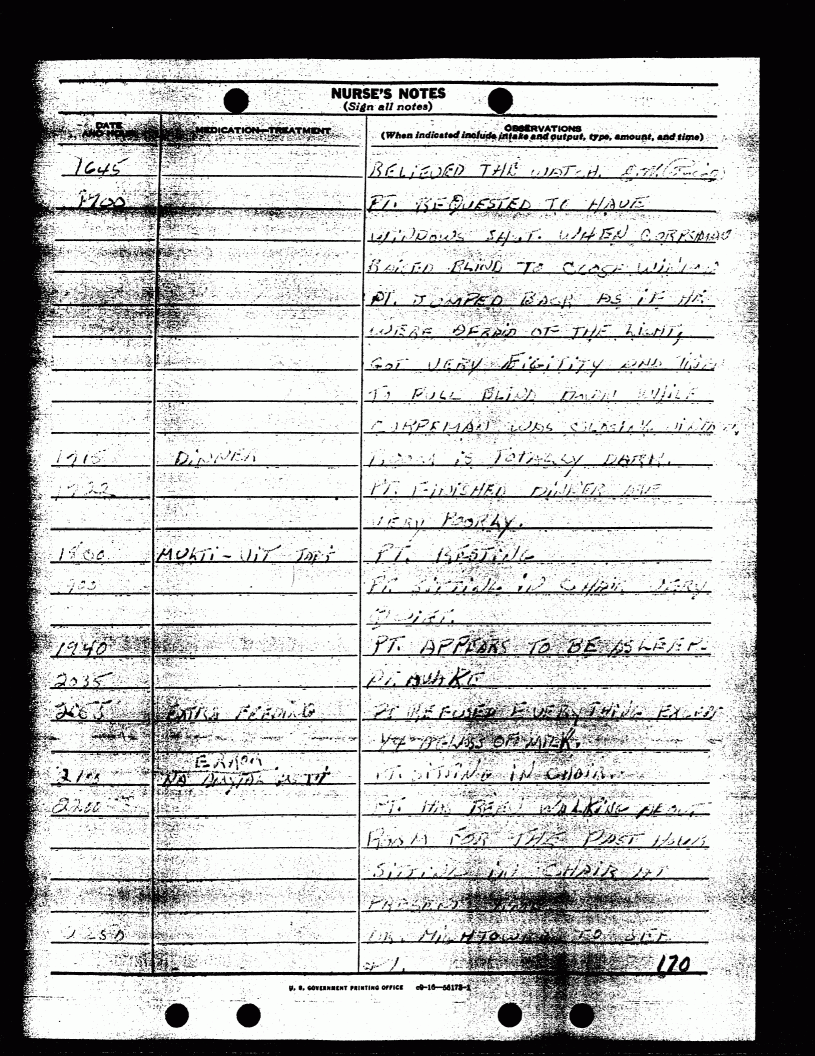 NURSE'S NOTES
(Sign all notes)
DATE AND HOUR MEDICATION—TREATMENT OBSERVATIONS
(When indicated include intake and output, type, amount, and time)
1645 RELIEVED THE WATCH.
1700 PT. REQUESTED TO HAVE
WINDOWS SHUT. WHEN CORPSMAN
RAISED BLIND TO CLOSE WINDOW
PT. JUMPED BACK AS IF HE
WERE AFRAID OF THE LIGHT,
GOT VERY AND
TO PULL BLIND DOWN WHILE
CORPSMAN WAS CLOSING WINDOW.
1715 DINNER ROOM IS TOTALLY DARK.
1722 PT. FINISHED DINNER ATE
VERY POORLY.
1800 MULTI-VIT PT. RESTING
1900 PT. SITTING IN CHAIR VERY
QUIET.
1940 PT. APPEARS TO BE ASLEEP.
2035 PT. AWAKE
2055 EXTRA FEEDING PT REFUSED EVERYTHING EXCEPT
GLASS OF MILK.
ERROR
2100 PT SITTING IN CHAIR.
2200 PT. HAS BEEN WALKING ABOUT
ROOM FOR THE PAST HOUR
SITTING IN CHAIR AT
PRESENT
DR. TO SEE
PT.
170
U. S. GOVERNMENT PRINTING OFFICE